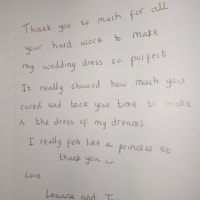 Thank you so much for all
your hard work to make
my wedding dress so perfect
It really showed how much you
cared and took your time to make
the dress of my dreams
I really felt like a princess so
thank you
Love
Leanne and